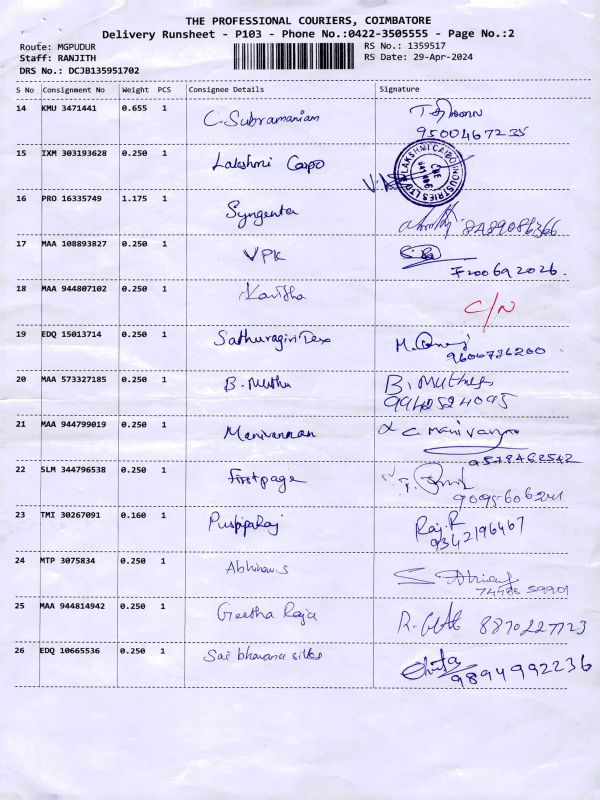 THE PROFESSIONAL COURIERS, COIMBATORE
Delivery Runsheet - P103 - Phone No.:0422-3505555 - Page No.:2
Route: MGPUDUR RS No.: 1359517
Staff: RANJITH RS Date: 29-Apr-2024
DRS No.: DCJB135951702
S No Consignment No Weight PCS Consignee Details Signature
14 KMU 3471441 0.655 1 C. Subramaniam
9500467235
15 IXM 303193628 0.250 1 Lakshmi Capo
LAKSHMI CAIPO INDUSTRIES LTD
16 PRO 16335749 1.175 1 Syngenta
17 MAA 108893827 0.250 1 VPK
18 MAA 944807102 0.250 1 Kavitha C/N
19 EDQ 15013714 0.250 1 Sathuragiri Tex M.
9600736200
20 MAA 573327185 0.250 1 B. Muthu B. Muthu
9942524095
21 MAA 944799019 0.250 1 Manivannan C. Manivannan
9578462542
22 SLM 344796538 0.250 1 Firstpage
23 TMI 30267091 0.160 1 Pushparaj Raj.R
9342196467
24 MTP 3075834 0.250 1 Abhinav.S
74485 59901
25 MAA 944814942 0.250 1 Geetha Raja 8870227723
26 EDQ 10665536 0.250 1 Sai bhavana silks
9894992236